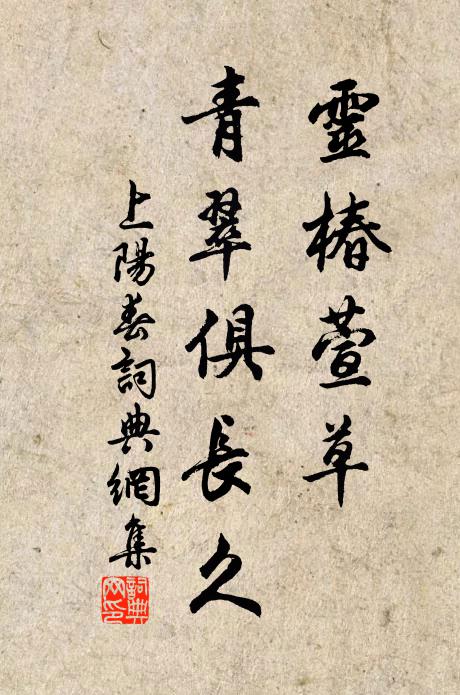 靈椿萱草
青翠俱長久
上陽春詞典網集
詞典網印